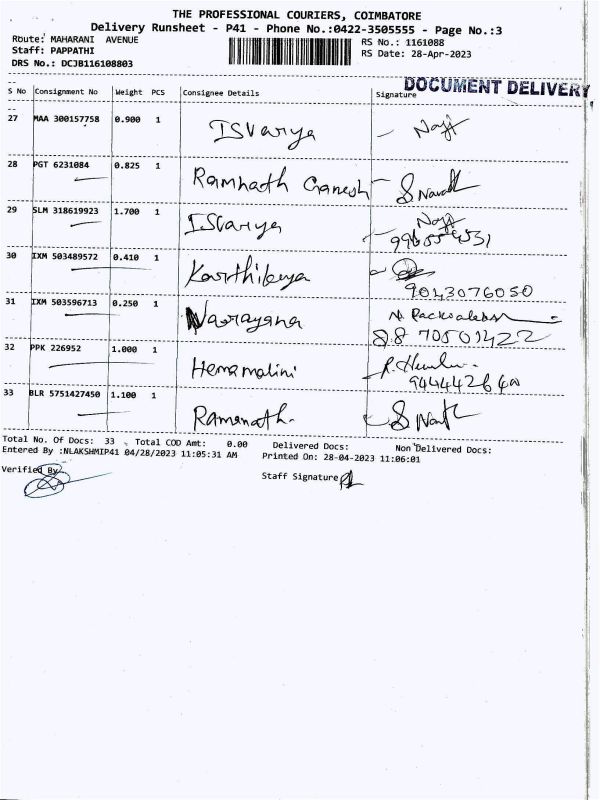 THE PROFESSIONAL COURIERS, COIMBATORE
Delivery Runsheet - P41 - Phone No.:0422-3505555 - Page No.:3
Route: MAHARANI AVENUE
RS No.: 1161088
Staff: PAPPATHI
RS Date: 28-Apr-2023
DRS No.: DCJB116108803
DOCUMENT DELIVERY
S No Consignment No Weight PCS Consignee Details Signature
27 MAA 300157758 0.900 1 ISvarya
28 PGT 6231084 0.825 1 Ramnath Ganesh
29 SLM 318619923 1.700 1 ISvarya
30 IXM 503489572 0.410 1 Karthikeya
9043076050
31 IXM 503596713 0.250 1 Narayana
32 PPK 226952 1.000 1 Hemamalini
33 BLR 5751427450 1.100 1 Ramanath.
Total No. Of Docs: 33 Total COD Amt: 0.00 Delivered Docs: Non Delivered Docs:
Entered By :NLAKSHMIP41 04/28/2023 11:05:31 AM Printed On: 28-04-2023 11:06:01
Verified By
Staff Signature